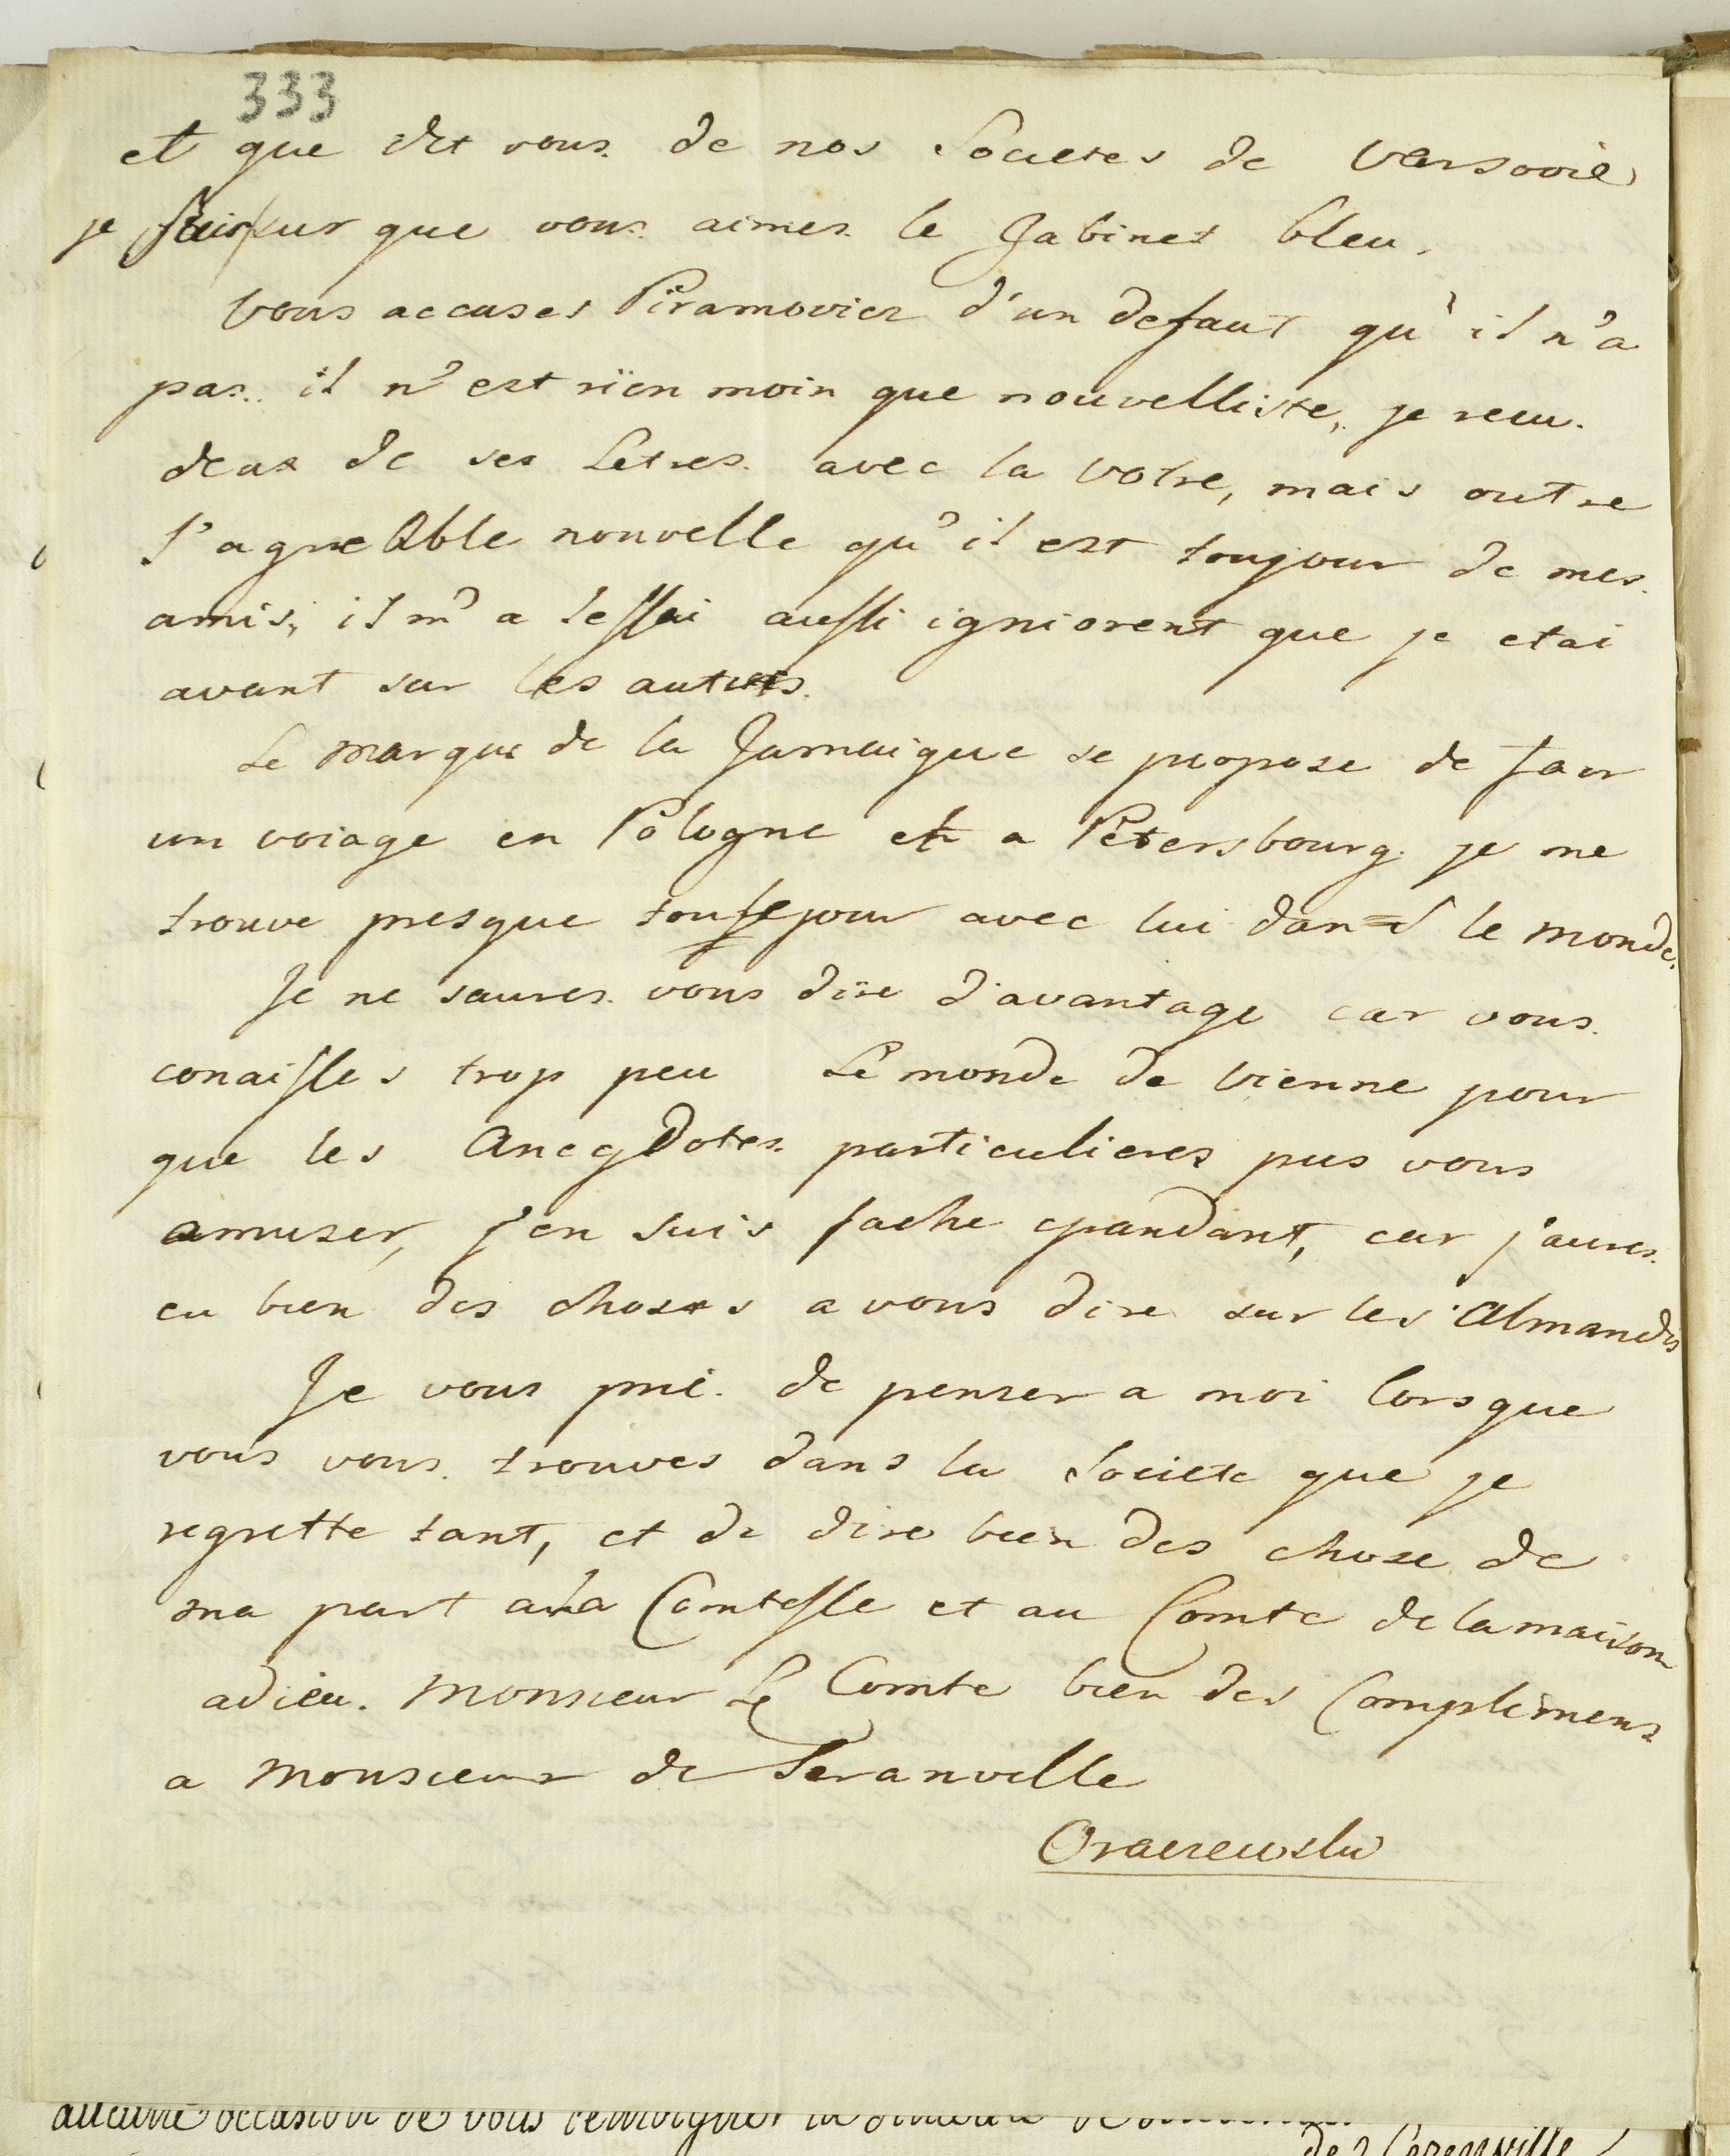 333
et que dit vous de nos Societes de Varsovie
je suis sur que vous aimes le Gabinet bleu.
Vous accuses Piramovicz d'un defaut qu'il n'a
pas. il n'est rien moin que nouvelliste, je recu.
deux de ses Letres. avec la votre, mais outre
l'agreable nouvelle qu'il est toujour de mes
amis, il m'a lessai aussi igniorent que je etai
avant sur les autres.
Le Marquis de la Jamaique se propose de fair
un voiage en Pologne et a Petersbourg. je me
trouve presque toujour avec lui dans le monde.
Je ne saures vous dire d'avantage car vous
conaisses trop peu Le monde de Vienne pour
que les Anecgdotes particulieres pus vous
amuser, j'en suis fache cpandant, car j'aures
eu bien des choses a vous dire sur les Almands
Je vous prie. de penser a moi lorsque
vous vous trouves dans la Societe que je
regrette tant, et de dire bien des chose de
ma part a la Comtesse et au Comte de la maison
adieu. Monsieur Le Comte bien des Complimens
a Monsieur de Seranville
Oraczewski
aucune occasion de vous temoigner la
de Serenville